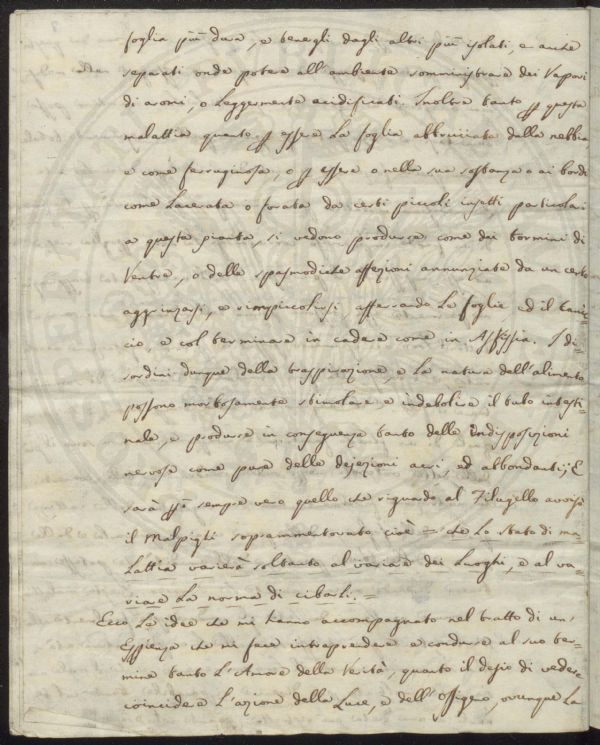 foglia più dura, e tenergli dagli altri più isolati, e anche
separati onde potere all'ambiente somministrare dei Vapori
di aromi, o Leggermente acidificati. Inoltre tanto p questa
malattia quanto p essere La foglia abbruciata dalla nebbia
e come ferruginosa, o p essere o nella sua sostanza o ai bordi
come Lacerata o forata da certi piccoli insetti particolari
a questa pianta, si vedono produrre come dei tormini di
Ventre, o delle spasmodiche affezioni annunziate da un certo
aggrinzarsi, e rimpicciolirsi afferrando Le foglie ed il
cio, e col terminare in cadere come in Asfissia. I di-
sordini dunque della traspirazione, e La natura dell'alimento
possono morbosamente stimolare e indebolire il tubo intesti-
nale, e produrre in conseguenza tanto delle indisposizioni
nervose come pure delle dejezioni acri, ed abbondanti; E
sarà sempre vero quello che riguardo al Filugello avvisò
il Malpigli soprammentovato cioè = che Lo stato di ma-
Lattia varierà soltanto al variare dei Luoghi, e al va-
riare La norma di cibarli. =
Ecco Le idee che mi hanno accompagnato nel tratto di un'
Esprienza che mi fece intraprendere e condurre al suo ter-
mine tanto L'Amore della Verità, quanto il desio di vedere
coincidere L'azione della Luce, e dell'Ossigeno, ovunque La